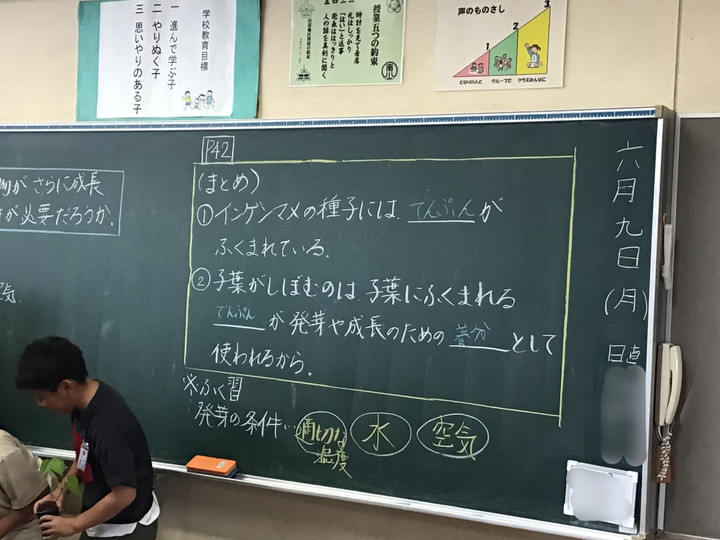 学校教育目標
一 進んで学ぶ子
二 やりぬく子
三 思いやりのある子
授業五つの約束
時計を見て着席
礼はしっかり
「はい」と返事
発表ははっきりと
人の話を真剣に聞く
声のものさし
1
2
3
となりの人と
グループで
クラスみんなに
P42
(まとめ)
①インゲンマメの種子には、でんぷんが
ふくまれている。
②子葉がしぼむのは、子葉にふくまれる
でんぷんが発芽や成長のための養分として
使われるから。
※ふく習
発芽の条件…適切な温度 水 空気
がさらに成長
が必要だろうか。
気
六月九日(月)
日直